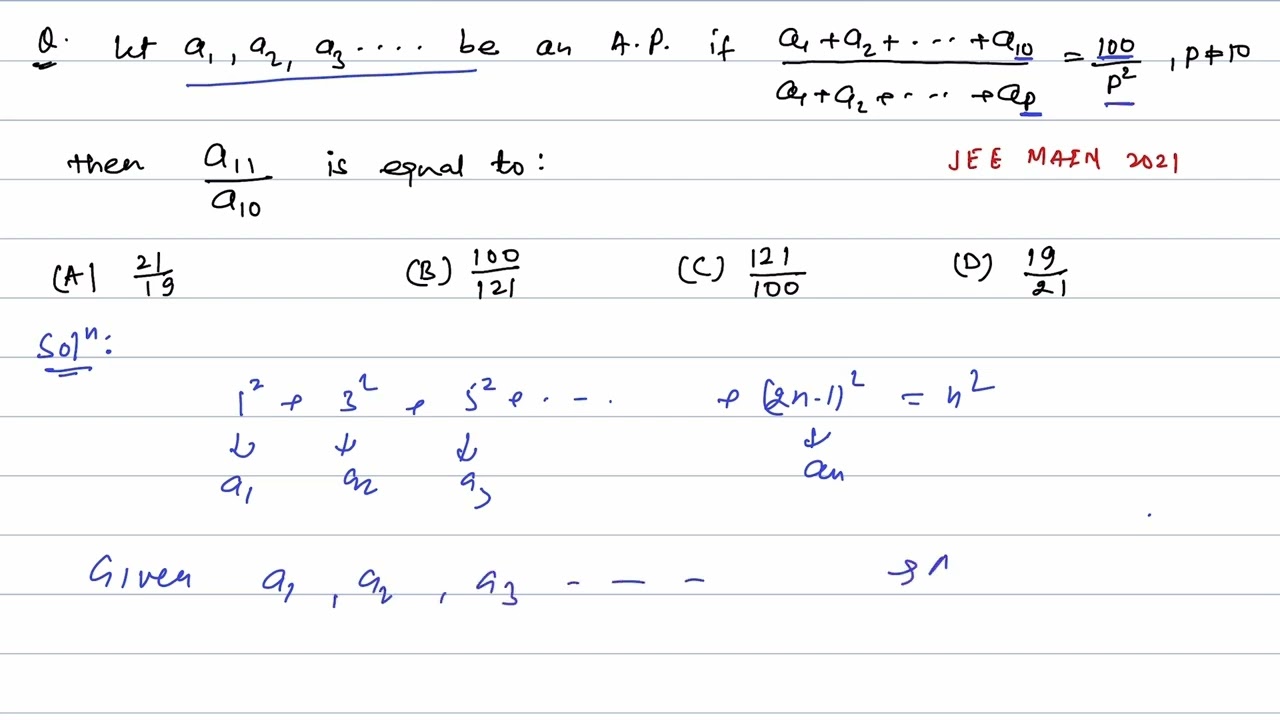 Q. Let a₁, a₂, a₃ .... be an A.P. if (a₁ + a₂ + ... + a₁₀)/(a₁ + a₂ + ... + aₚ) = 100/p², p ≠ 10
then a₁₁/a₁₀ is equal to:
JEE MAIN 2021
(A) 21/19 (B) 100/121 (C) 121/100 (D) 19/21
Solⁿ:
1² + 3² + 5² + ... + (2n-1)² = n²
a₁ a₂ a₃ aₙ
Given a₁, a₂, a₃ - - - →